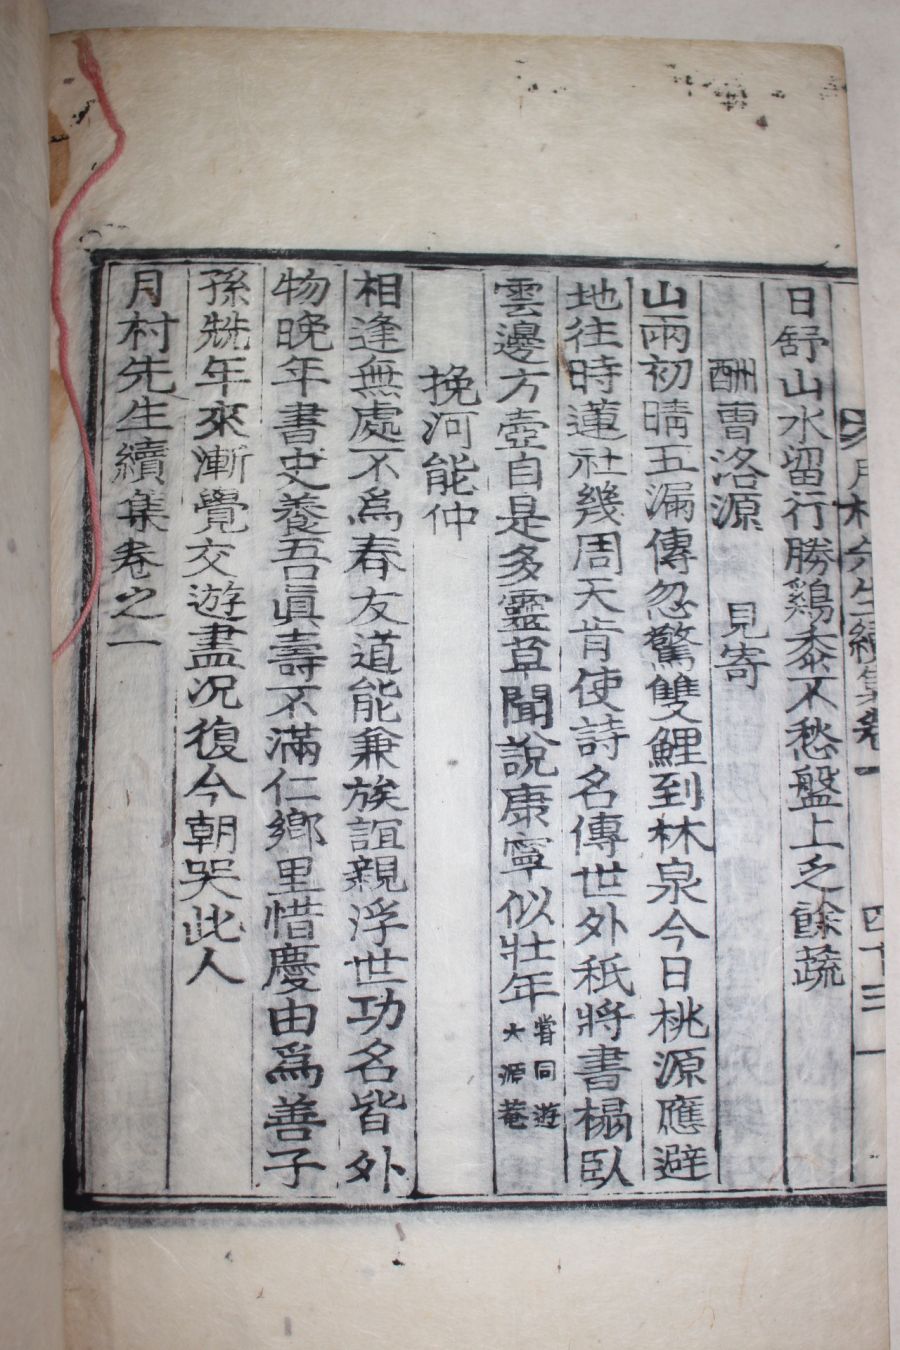 月村先生續集卷一 四十三
日舒山水留行勝鷄黍不愁盤上乏餘蔬
酬曺洛源 見寄
山雨初晴五漏傳忽驚雙鯉到林泉今日桃源應避
地往時蓮社幾周天肯使詩名傳世外秖將書榻臥
雲邊方壺自是多靈草聞說康寧似壯年嘗同遊大源菴
挽河能仲
相逢無處不爲春友道能兼族誼親浮世功名皆外
物晚年書史養吾眞壽不滿仁鄉里惜慶由爲善子
孫兟年來漸覺交遊盡况復今朝哭此人
月村先生續集卷之一